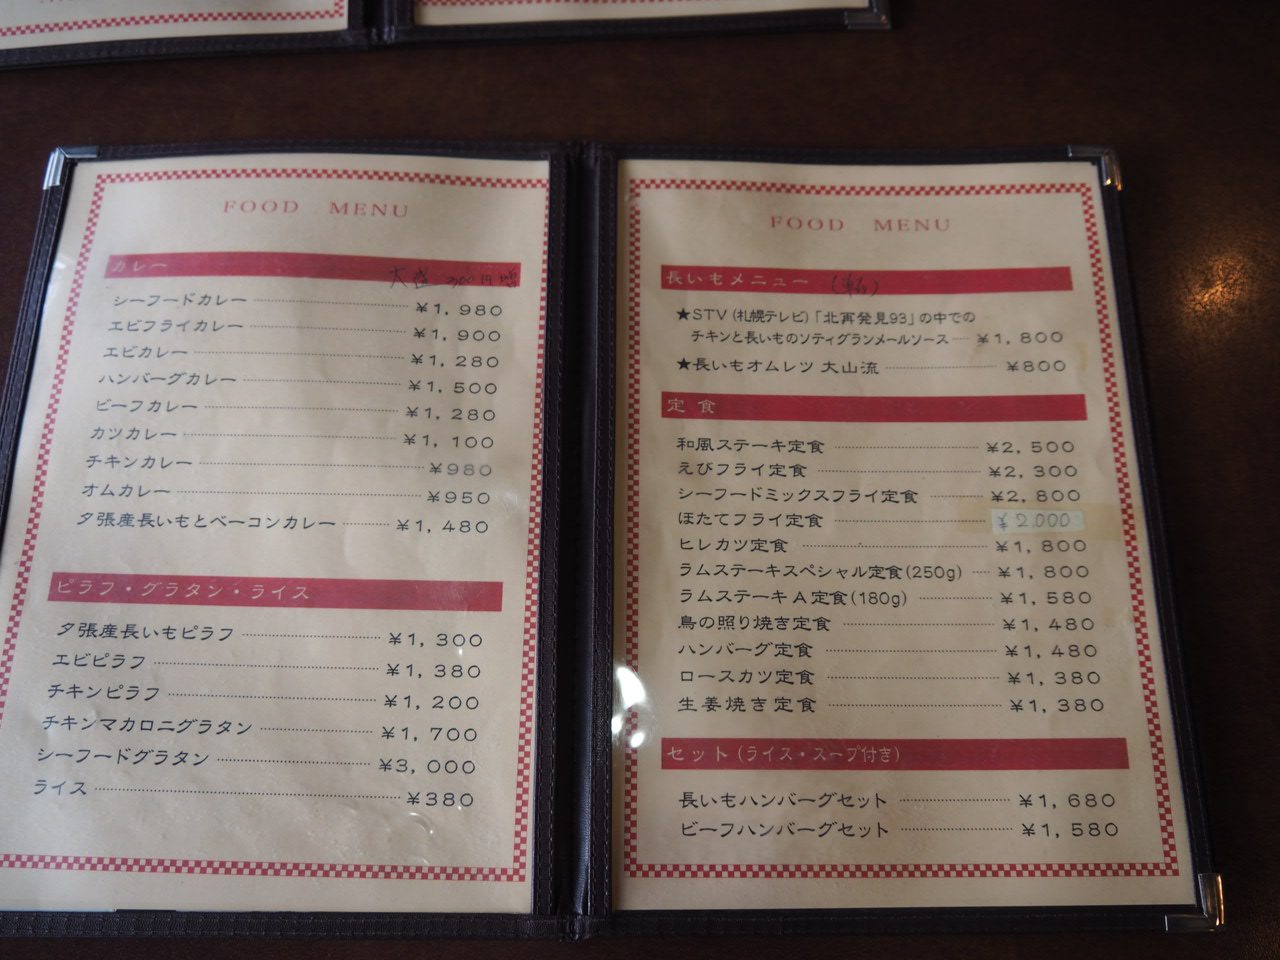 FOOD MENU
カレー 大盛 300円増
シーフードカレー ¥1,980
エビフライカレー ¥1,900
エビカレー ¥1,280
ハンバーグカレー ¥1,500
ビーフカレー ¥1,280
カツカレー ¥1,100
チキンカレー ¥980
オムカレー ¥950
夕張産長いもとベーコンカレー ¥1,480
ピラフ・グラタン・ライス
夕張産長いもピラフ ¥1,300
エビピラフ ¥1,380
チキンピラフ ¥1,200
チキンマカロニグラタン ¥1,700
シーフードグラタン ¥3,000
ライス ¥380
FOOD MENU
長いもメニュー (単品)
★STV(札幌テレビ)「北再発見93」の中での
チキンと長いものソティグランメールソース ¥1,800
★長いもオムレツ 大山流 ¥800
定食
和風ステーキ定食 ¥2,500
えびフライ定食 ¥2,300
シーフードミックスフライ定食 ¥2,800
ほたてフライ定食 ¥2.000
ヒレカツ定食 ¥1,800
ラムステーキスペシャル定食(250g) ¥1,800
ラムステーキA定食(180g) ¥1,580
鳥の照り焼き定食 ¥1,480
ハンバーグ定食 ¥1,480
ロースカツ定食 ¥1,380
生姜焼き定食 ¥1,380
セット(ライス・スープ付き)
長いもハンバーグセット ¥1,680
ビーフハンバーグセット ¥1,580